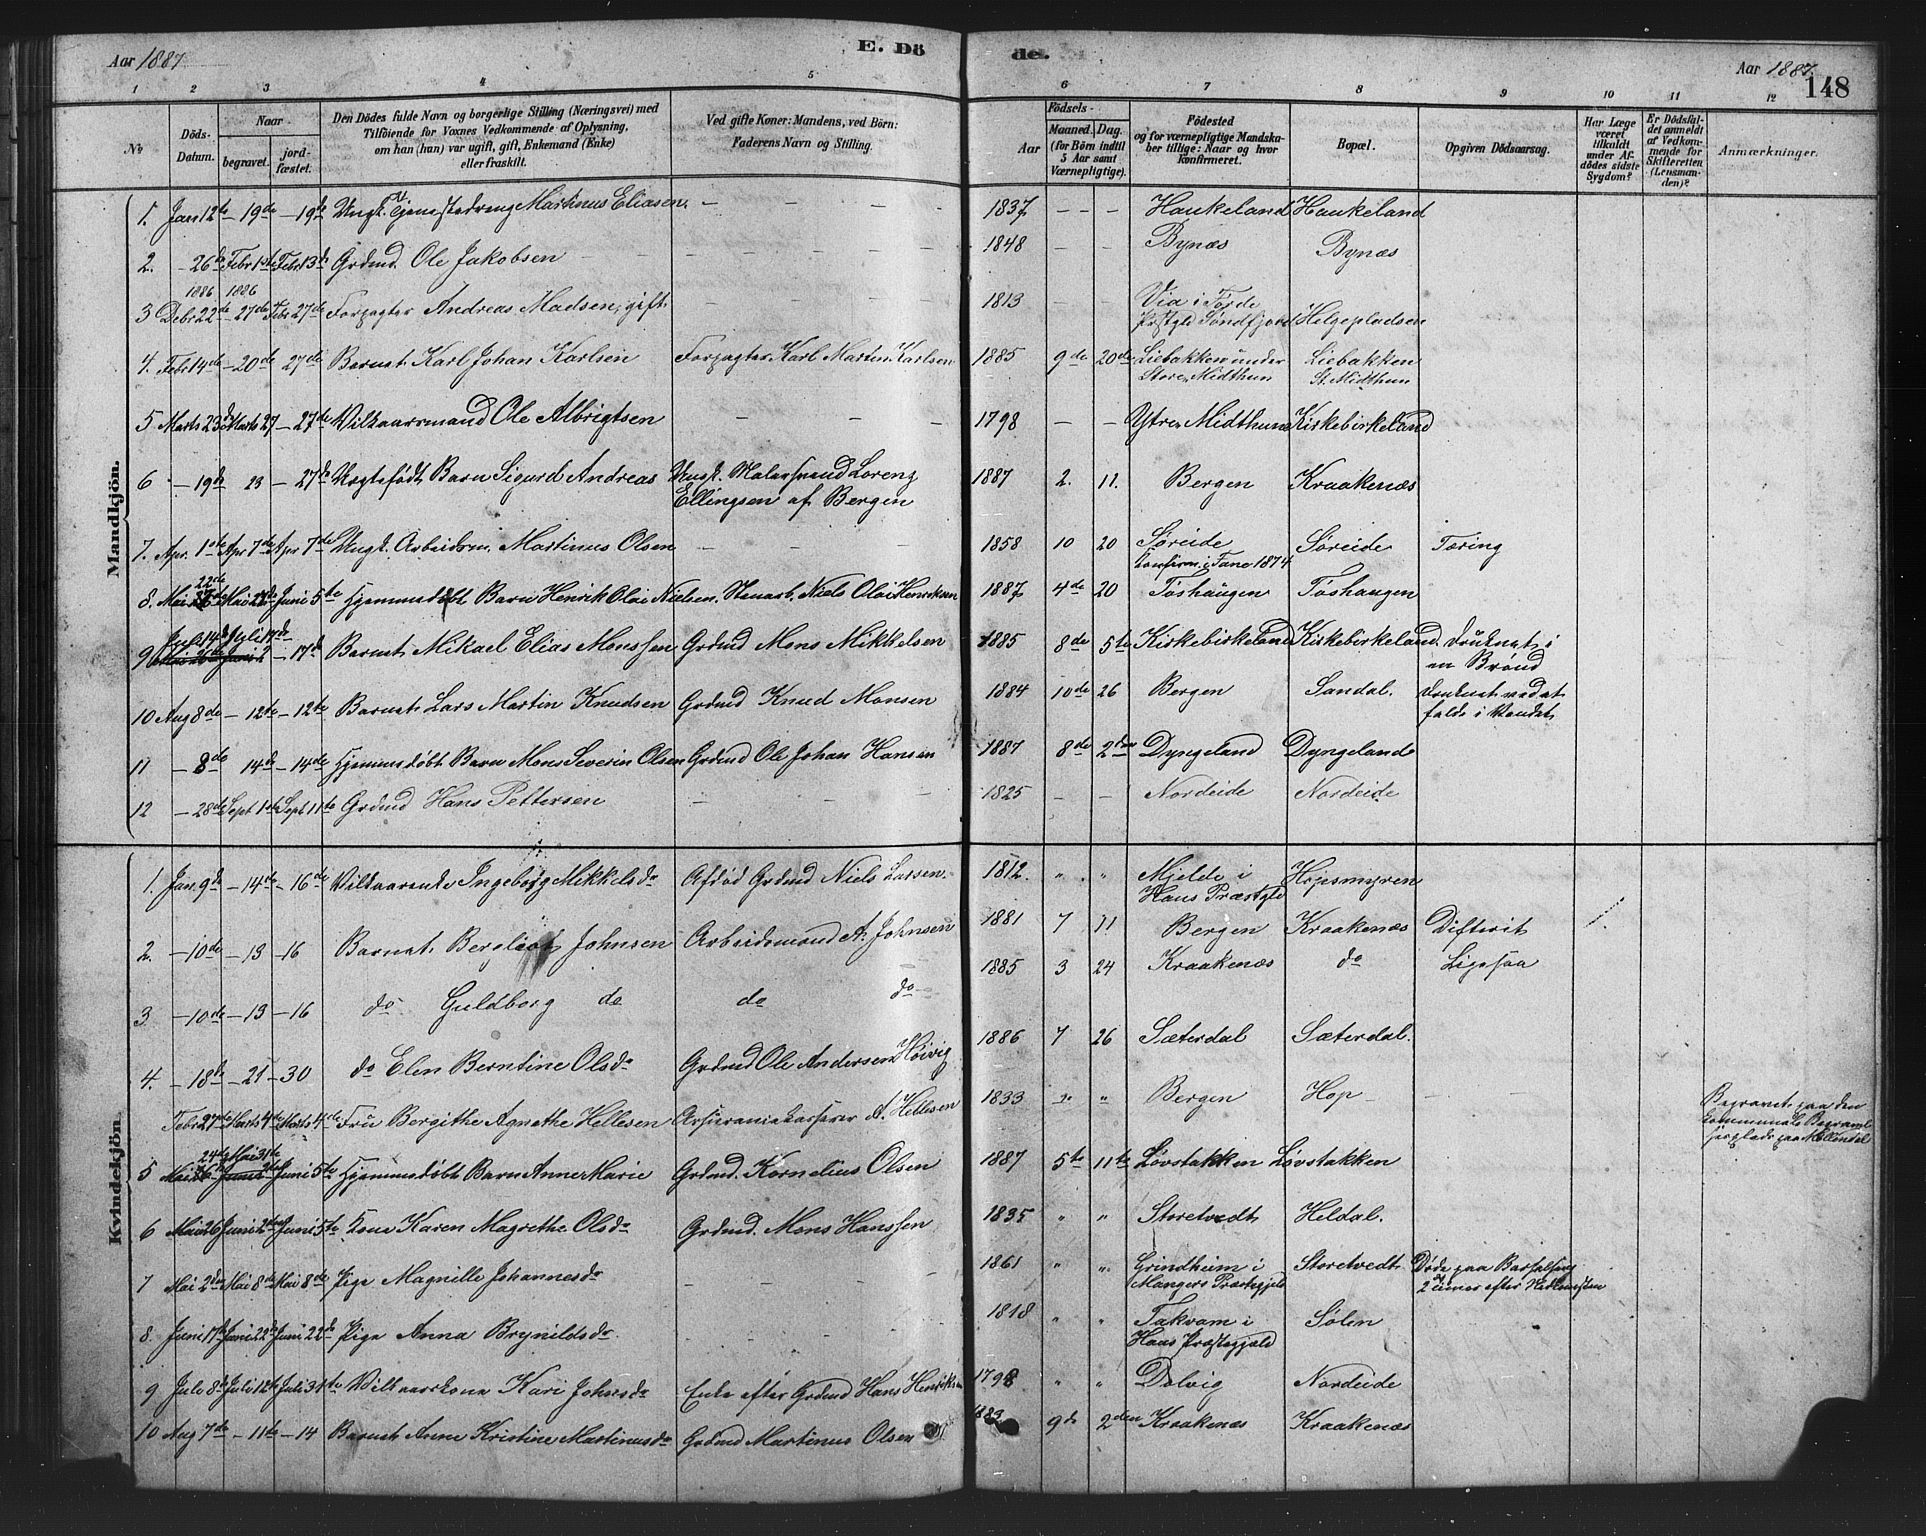 Aar 1887
E. Dö
de.
Aar 1887.
148
1 2 3 4 5 6 7 8 9 10 11 12
№
Döds-Datum.
Naar
begravet.
jord-fæstet.
Den Dödes fulde Navn og borgerlige Stilling (Næringsvei) med
Tilföiende for Voxnes Vedkommende af Oplysning,
om han (hun) var ugift, gift, Enkemand (Enke)
eller fraskilt.
Ved gifte Koner: Mandens, ved Börn:
Faderens Navn og Stilling.
Födsels-
Aar
Maaned. Dag.
(for Börn indtil
5 Aar samt
Værnepligtige).
Födested
og for værnepligtige Mandska-
ber tillige: Naar og hvor
Konfirmeret.
Bopæl.
Opgiven Dödsaarsag.
Har Læge
været
tilkaldt
under Af-
dödes sidste
Sygdom?
Er Dödsfal-
det anmeldt
af Vedkom-
mende for
Skifteretten
(Lensman-
den)?
Anmærkninger.
Mandkjön.
1. Jan 12te — 19de — 19de Ungk. Tjenestedreng Markus Eliasen. — — — 1837 — — Haukeland Haukeland
2. — 26de Febr 1ste Febr 13de Grdmd. Ole Jakobsen — — — 1848 — — Bynæs Bynæs
1886 1886
3 Debr 22de — 27de Febr 27de Forpagter Andreas Madsen, gift — — — 1813 — — Via i Førde
Præstgld Søndfjord Helgepladsen
4. Febr 14de — 20de 27de Barnet Karl Johan Karlsen Forpagter Karl Martin Karlsen 1885 9de 20de Liebakken under Liebakken
Store Midthun St. Midthun
5 Marts 23de Marts 27 — 27de Vilkaarsmand Ole Albrigtsen — — — 1798 — — Ytre Midthun Kirkebirkeland
6 — 19de 23 — 27de Uægtefødt Barn Sigurd Andreas Ungk. Malersvend Lorenz 1887 2. 11. Bergen Kraakenæs
Ellingsen af Bergen
7. Apr. 1ste Apr 7de Apr 7de Ungk. Arbeidsm. Martinus Olsen — — — 1858 10 20 Søreide Søreide Tæring
Konfirm. i Fane 1874
22de
8. Mai Mai Juni 5te Hjemmedøbt Barn Henrik Olai Nielsen. Stenarb. Niels Olai Henriksen 1887 4de 20 Tøshaugen Tøshaugen
Juli 14de Juli 17de
9 — 17de Barnet Mikael Elias Monssen Grdmd Mons Mikkelsen 1885 8de 5te Kirkebirkeland Kirkebirkeland. Druknet i
en Brønd
10 Aug 8de — 12te — 12te Barnet Lars Martin Knudsen Grdmd Knud Monsen 1884 10de 26 Bergen Sandal. Druknet ved at
falde i Vandet
11 — 8de 14de — 14de Hjemmedøbt Barn Mons Severin Olsen Grdmd Ole Johan Hansen 1887 8de 2den Dyngeland Dyngeland
12 — 28de Sept 1ste Sept 11te Grdmd Hans Pettersen — — — 1825 — — Nordeide Nordeide
Kvindekjön.
1. Jan. 9de — 14de — 16de Vilkaarenke Ingeborg Mikkelsdr Afdød Grdmd Niels Larsen. 1812. " " Mjelde i Hopsmyren
Haus Præstgld
2. — 10de — 13 — 16 Barnet Bergliot Johnsen Arbeidsmand A. Johnsen 1881 7 11 Bergen Kraakenæs Difterit
3 — 10de — 13 — 16 do Guldborg do do do 1885 3 24 Kraakenæs do Ligesaa
4. — 18de — 21 — 30 do Elen Berntine Olsdr Grdmd Ole Andersen Høivig 1886 7 26 Sæterdal Sæterdal.
Febr 27de Marts 4de Marts 4de Fru Bergithe Agnethe Hellesen Assurancekasserer A. Hellesen 1833 " " Bergen Hop — — Begravet paa den
kommunale Begravel-
sesplads paa Møllendal
24de Mai 31te
5 Mai Juni 5te Hjemmedøbt Barn Anne Marie Grdmd. Kornelius Olsen 1887 5te 11te Løvstakken Løvstakken
6 Mai 26 Juni 2de Juni 5te Kone Karen Magrethe Olsdr Grdmd. Mons Hanssen 1835 " " Storetvedt Heldal.
7 Mai 2den Mai 8de Mai 8de Pige Magnille Johannesdr — — — 1861 " " Grindheim i Storetvedt Døde paa Barselseng
Mangers Præstegjeld 2 Timer efter Nedkomsten
8. Juni 17de Juni 22de Juni 22de Pige Anna Brynildsdr. — — — 1818 " " Takvam i Sølen
Haus Præstegjeld
9 Juli 8de Juli 12te Juli 31te Vilkaarskone Kari Johnsdr Enke efter Grdmd Hans Henriksen 1798 " " Dolvig Nordeide
10 Aug 7de — 11te — 14 Barnet Anne Kristine Martinusdr Grdmd Martinus Olsen 1883 9de 2den Kraakenæs Kraakenæs